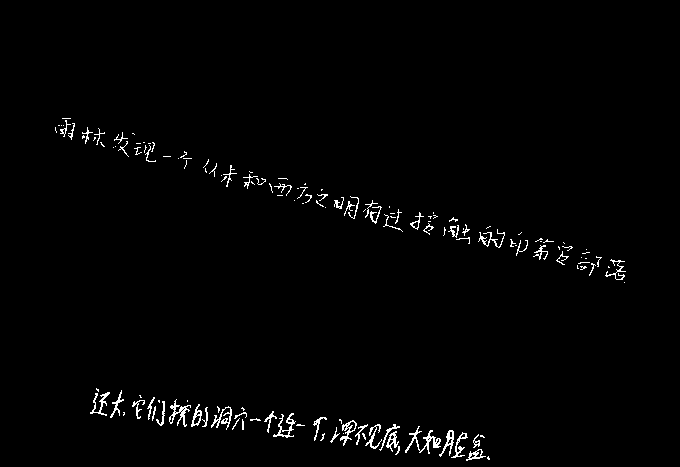 雨林发现一个从未和西方文明有过接触的印第安部落
还大,它们挖的洞穴一个连一个,深不见底,大如脸盆、